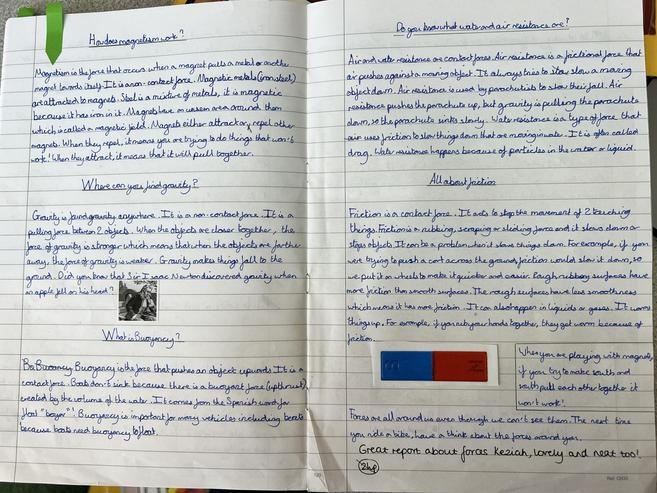 How does magnetism work?
Magnetism is the force that occurs when a magnet pulls a metal or another
magnet towards itself. It is a non-contact force. Magnetic metals (iron, steel)
are attracted to magnets. Steel is a mixture of metals, it is magnetic
because it has iron in it. Magnets have an unseen area around them
which is called a magnetic field. Magnets either attract or repel other
magnets. When they repel, it means you are trying to do things that won't
work! When they attract, it means that it will pull together.
Where can you find gravity?
Gravity is found gravity anywhere. It is a non-contact force. It is a
pulling force between 2 objects. When the objects are closer together, the
force of gravity is stronger which means that when the objects are further
away, the force of gravity is weaker. Gravity makes things fall to the
ground. Did you know that Sir Isaac Newton discovered gravity when
an apple fell on his head?
What is Buoyancy?
Buoyancy is the force that pushes an object upwards. It is a
contact force. Boats don't sink because there is a buoyant force (upthrust)
created by the volume of the water. It comes from the Spanish word for
float "boyar"! Buoyancy is important for many vehicles including boats
because boats need buoyancy to float.
Do you know what water and air resistance are?
Air and water resistance are contact forces. Air resistance is a frictional force that
air pushes against a moving object. It always tries to stop slow a moving
object down. Air resistance is used by parachutists to slow their fall. Air
resistance pushes the parachute up, but gravity is pulling the parachute
down, so the parachute sinks slowly. Water resistance is a type of force that
also uses friction to slow things down that are moving in water. It is often called
drag. Water resistance happens because of particles in the water or liquid.
All about friction
Friction is a contact force. It acts to stop the movement of 2 touching
things. Friction is a rubbing, scraping or sliding force and it slows down or
stops objects. It can be a problem when it slows things down. For example, if you
were trying to push a cart across the ground, friction would slow it down, so
we put it on wheels to make it quicker and easier. Rough rubbery surfaces have
more friction than smooth surfaces. The rough surfaces have less smoothness
which means it has more friction. It can also happen in liquids or gases. It warms
things up. For example, if you rub your hands together, they get warm because of
friction.
S N
When you are playing with magnets,
if you try to make south and
south pull each other together it
won't work!
Forces are all around us even though we can't see them. The next time
you ride a bike, have a think about the forces around you.
Great report about forces Keziah, lovely and neat too!
2hp